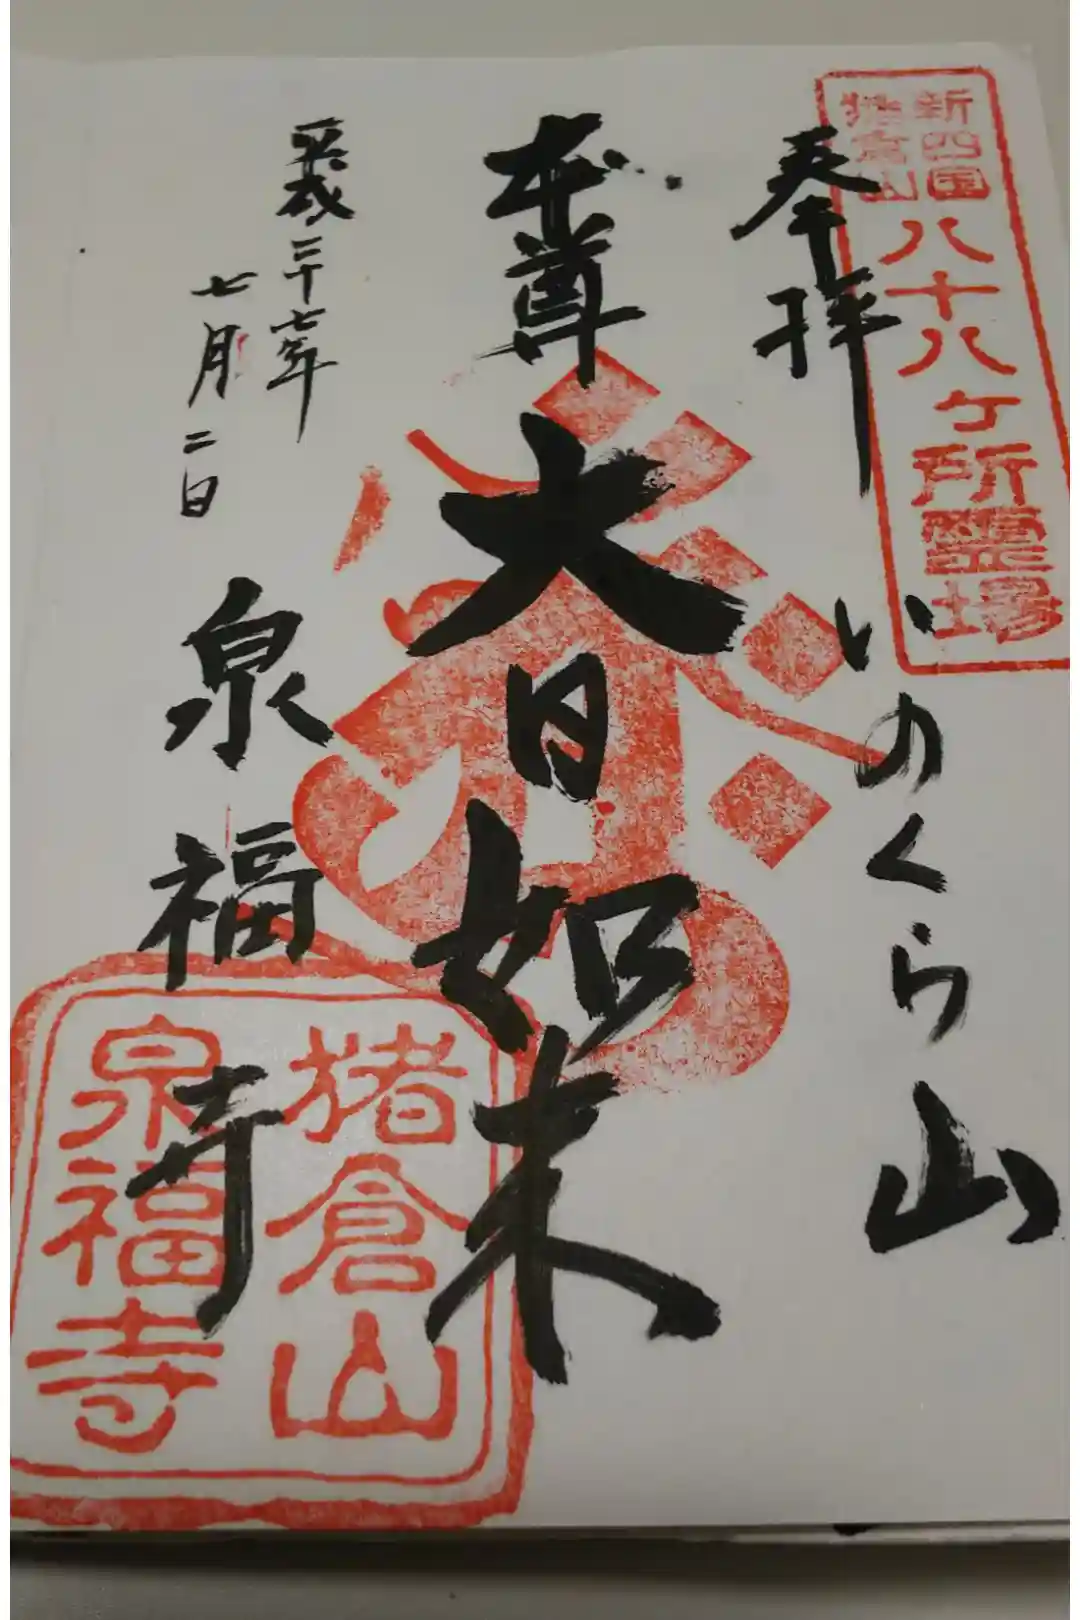 新四国
猪倉山
八十八ケ所霊場
奉拝
いのくら山
本尊
大日如来
平成二十七年
七月二日
泉福寺
猪倉山
泉福寺